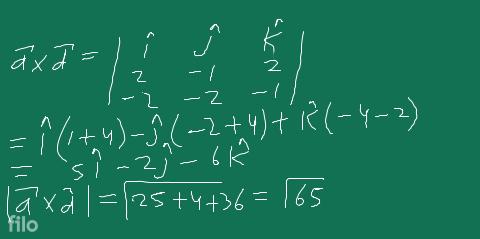 a⃗ × d⃗ = | î ĵ k̂ |
| 2 -1 2 |
| -2 -2 -1 |
= î(1+4) - ĵ(-2+4) + k̂(-4-2)
= 5î - 2ĵ - 6k̂
|a⃗ × d⃗| = √25+4+36 = √65
filo